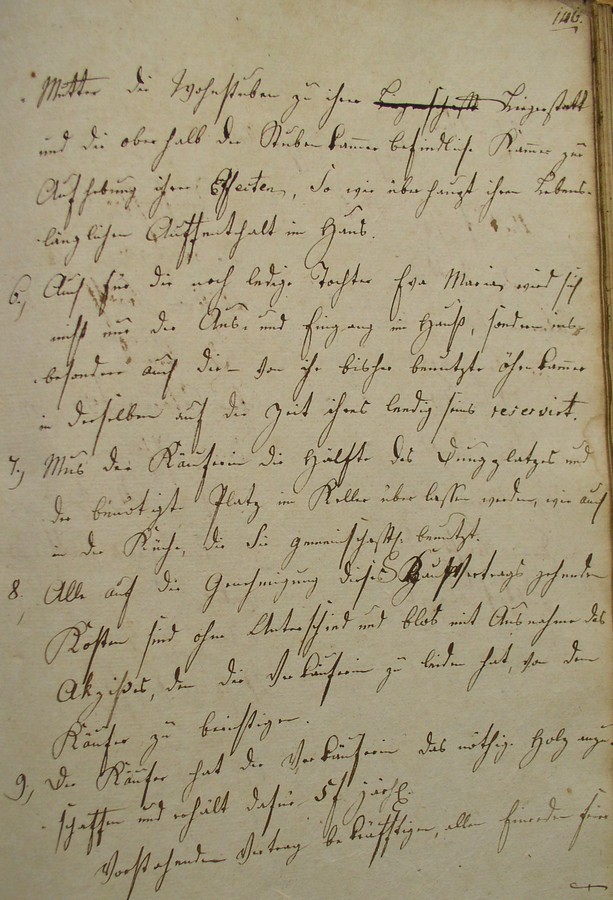 146.
Mutter die Wohnstuben zu ihrer Liegerstatt
und die oberhalb der Stubenkammer befindliche Kammer zur
Aufhebung ihrer Effecten, so wie überhaupt ihren Lebens-
länglichen Auffenthalt im Haus.
6., Auch für die noch ledige Tochter Eva Maria, wird sich
nicht nur der Aus- und Eingang im Hauß, sondern ins-
besondere auch die von ihr bisher benutzte Öhrnkammer
in derselben auf die Zeit ihres leedig seins reservirt.
7., Mus der Käuferin die Hälfte des Dungplatzes und
der benötigte Platz im Keller überlassen werden, wie auch
in der Küche, die sie gemeinschaftl. benutzt.
8., Alle auf die Genehmigung dieses Kaufvertrags gehenden
Kosten sind ohne Unterschied und blos mit Ausnahme des
Akzißes, den die Verkäuferin zu leiden hat, von dem
Käufer zu berichtigen.
9., Der Käufer hat der Verkäuferin das nöthige Holz anzu-
schaffen und erhält dafür 5 f jährl.
Vorstehenden Vertrag bekräfftigen, allen Einreden hier